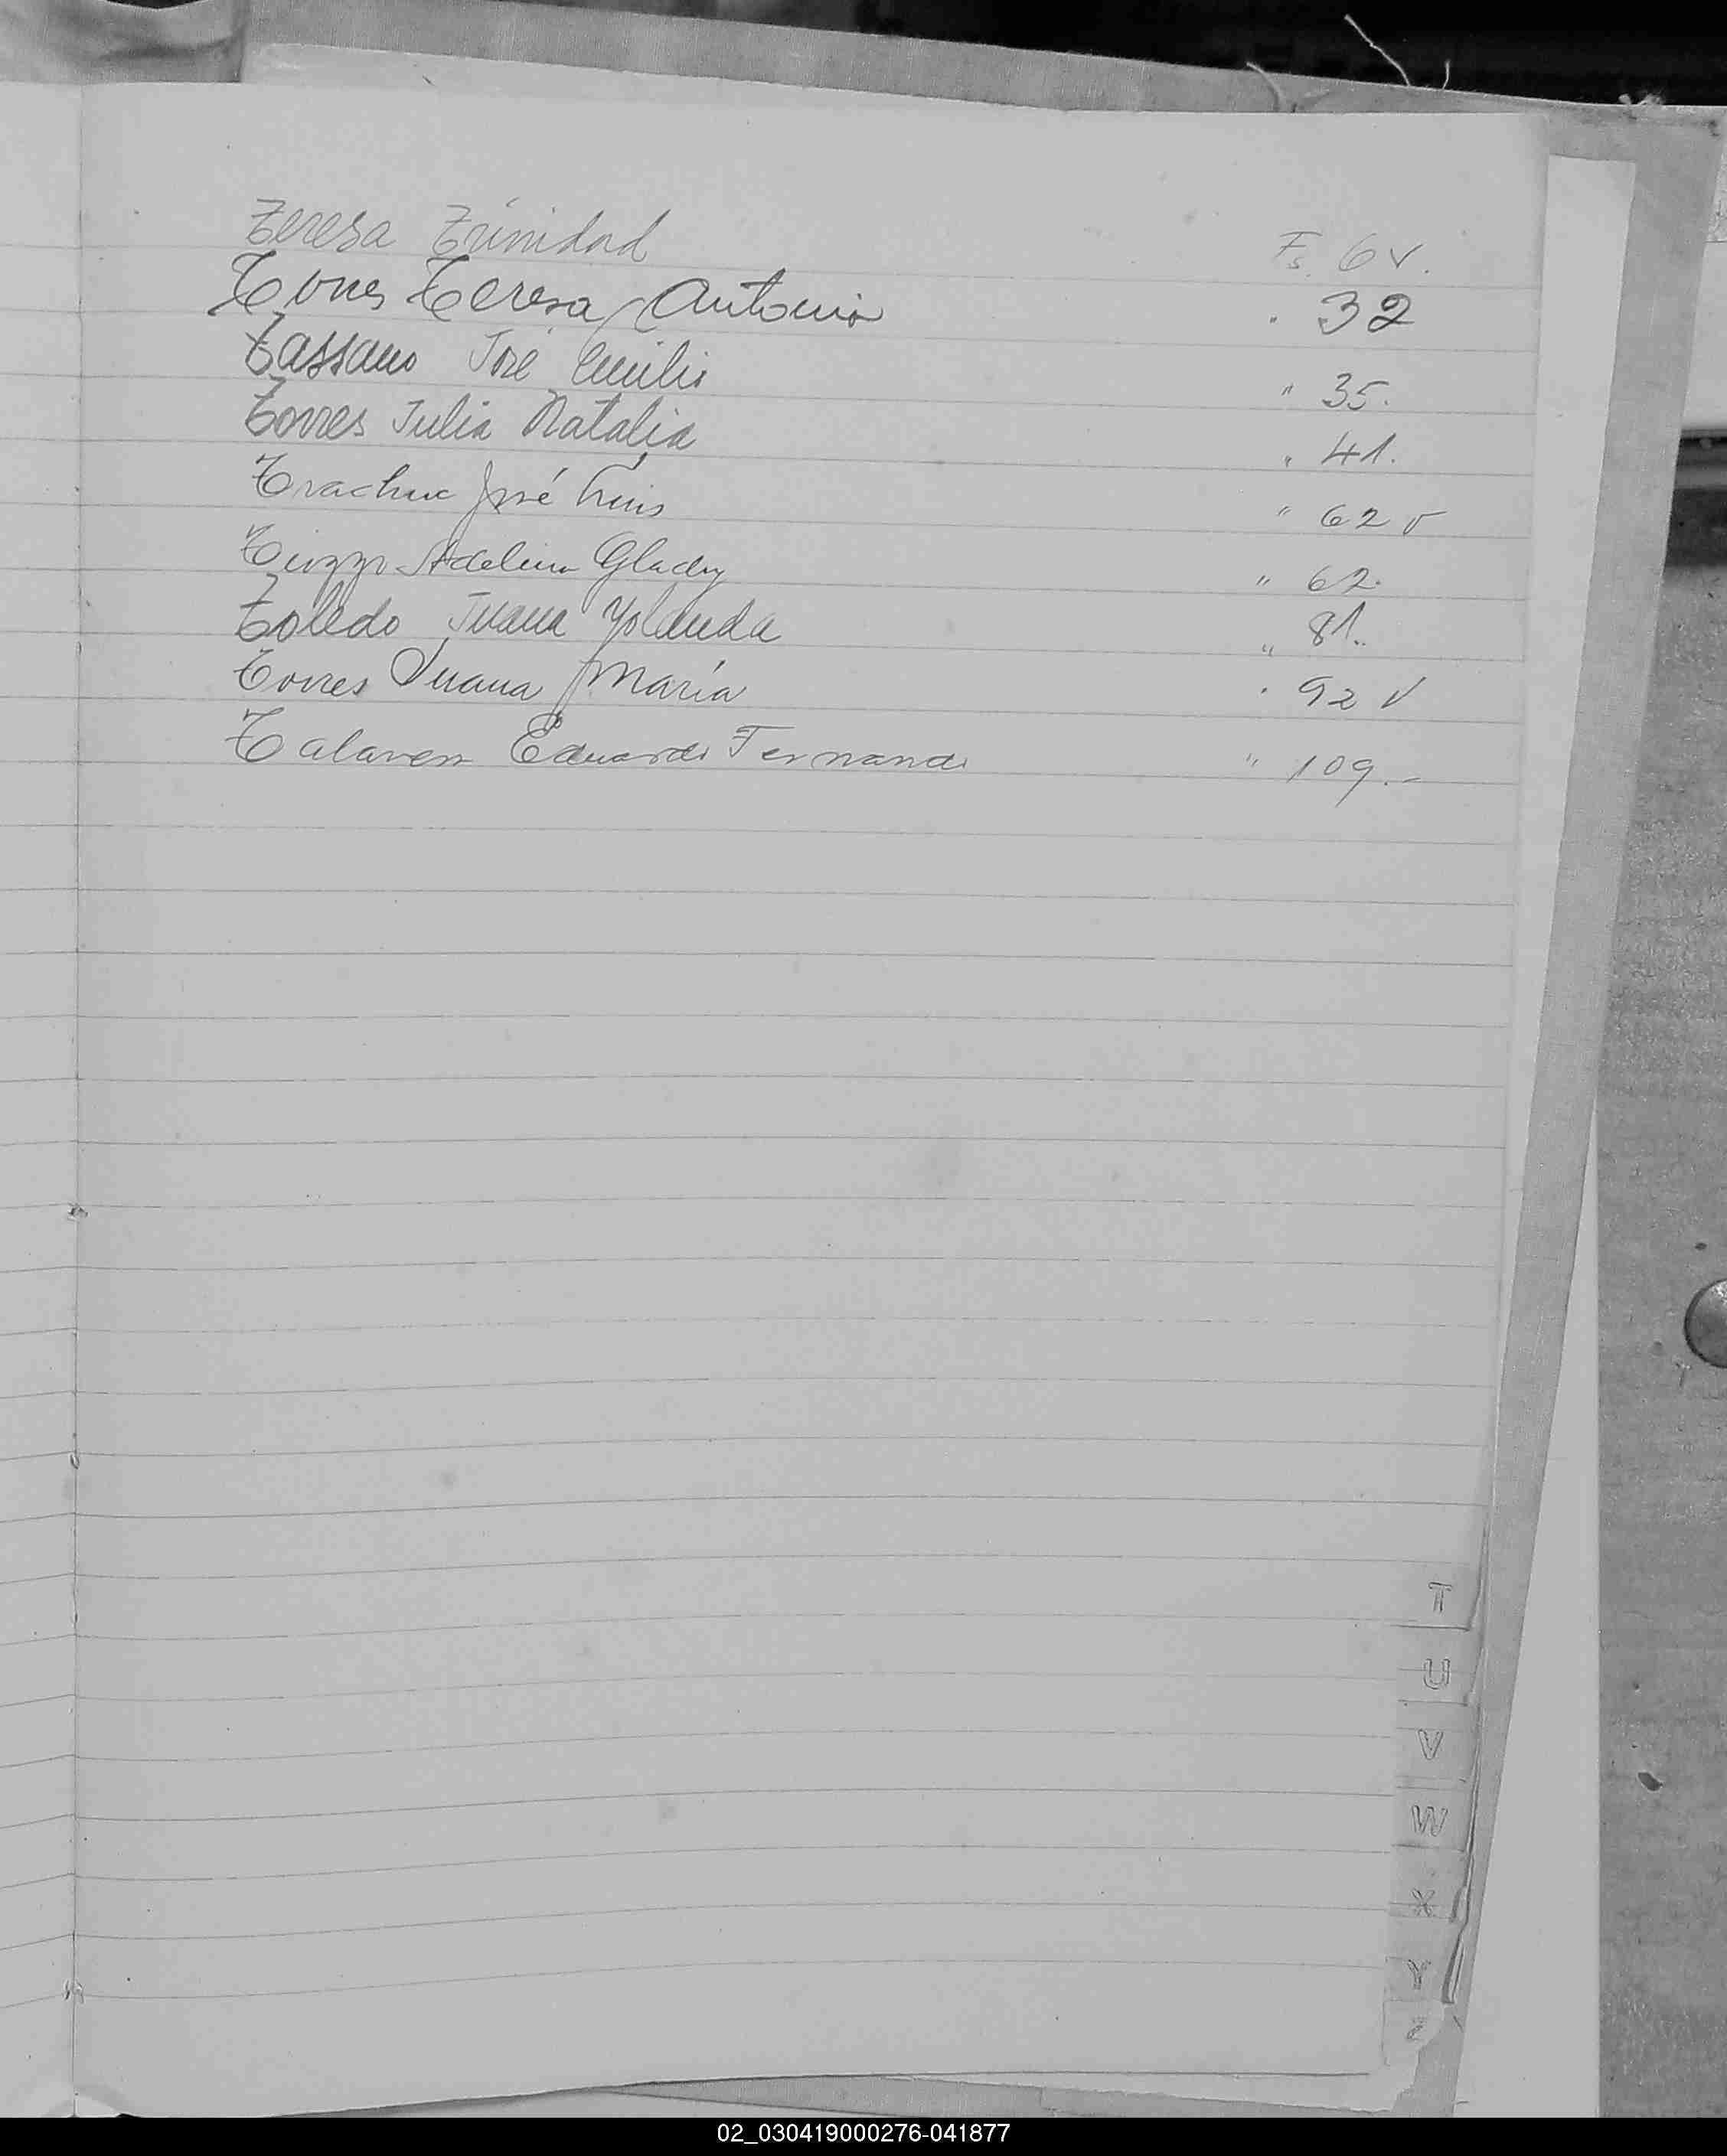 Teresa Trinidad Fs. 6 v.
Torres Teresa Antonia . 32
Tassano José Emilio " 35.
Torres Julia Natalia " 41.
Trachuc José Luis " 62 v
Adelina Glady " 62.
Toledo Juana Yolanda " 81..
Torres Juana María . 92 V
Talavera Eduardo Fernando " 109.-
T
U
V
W
X
Y
Z
02_030419000276-041877